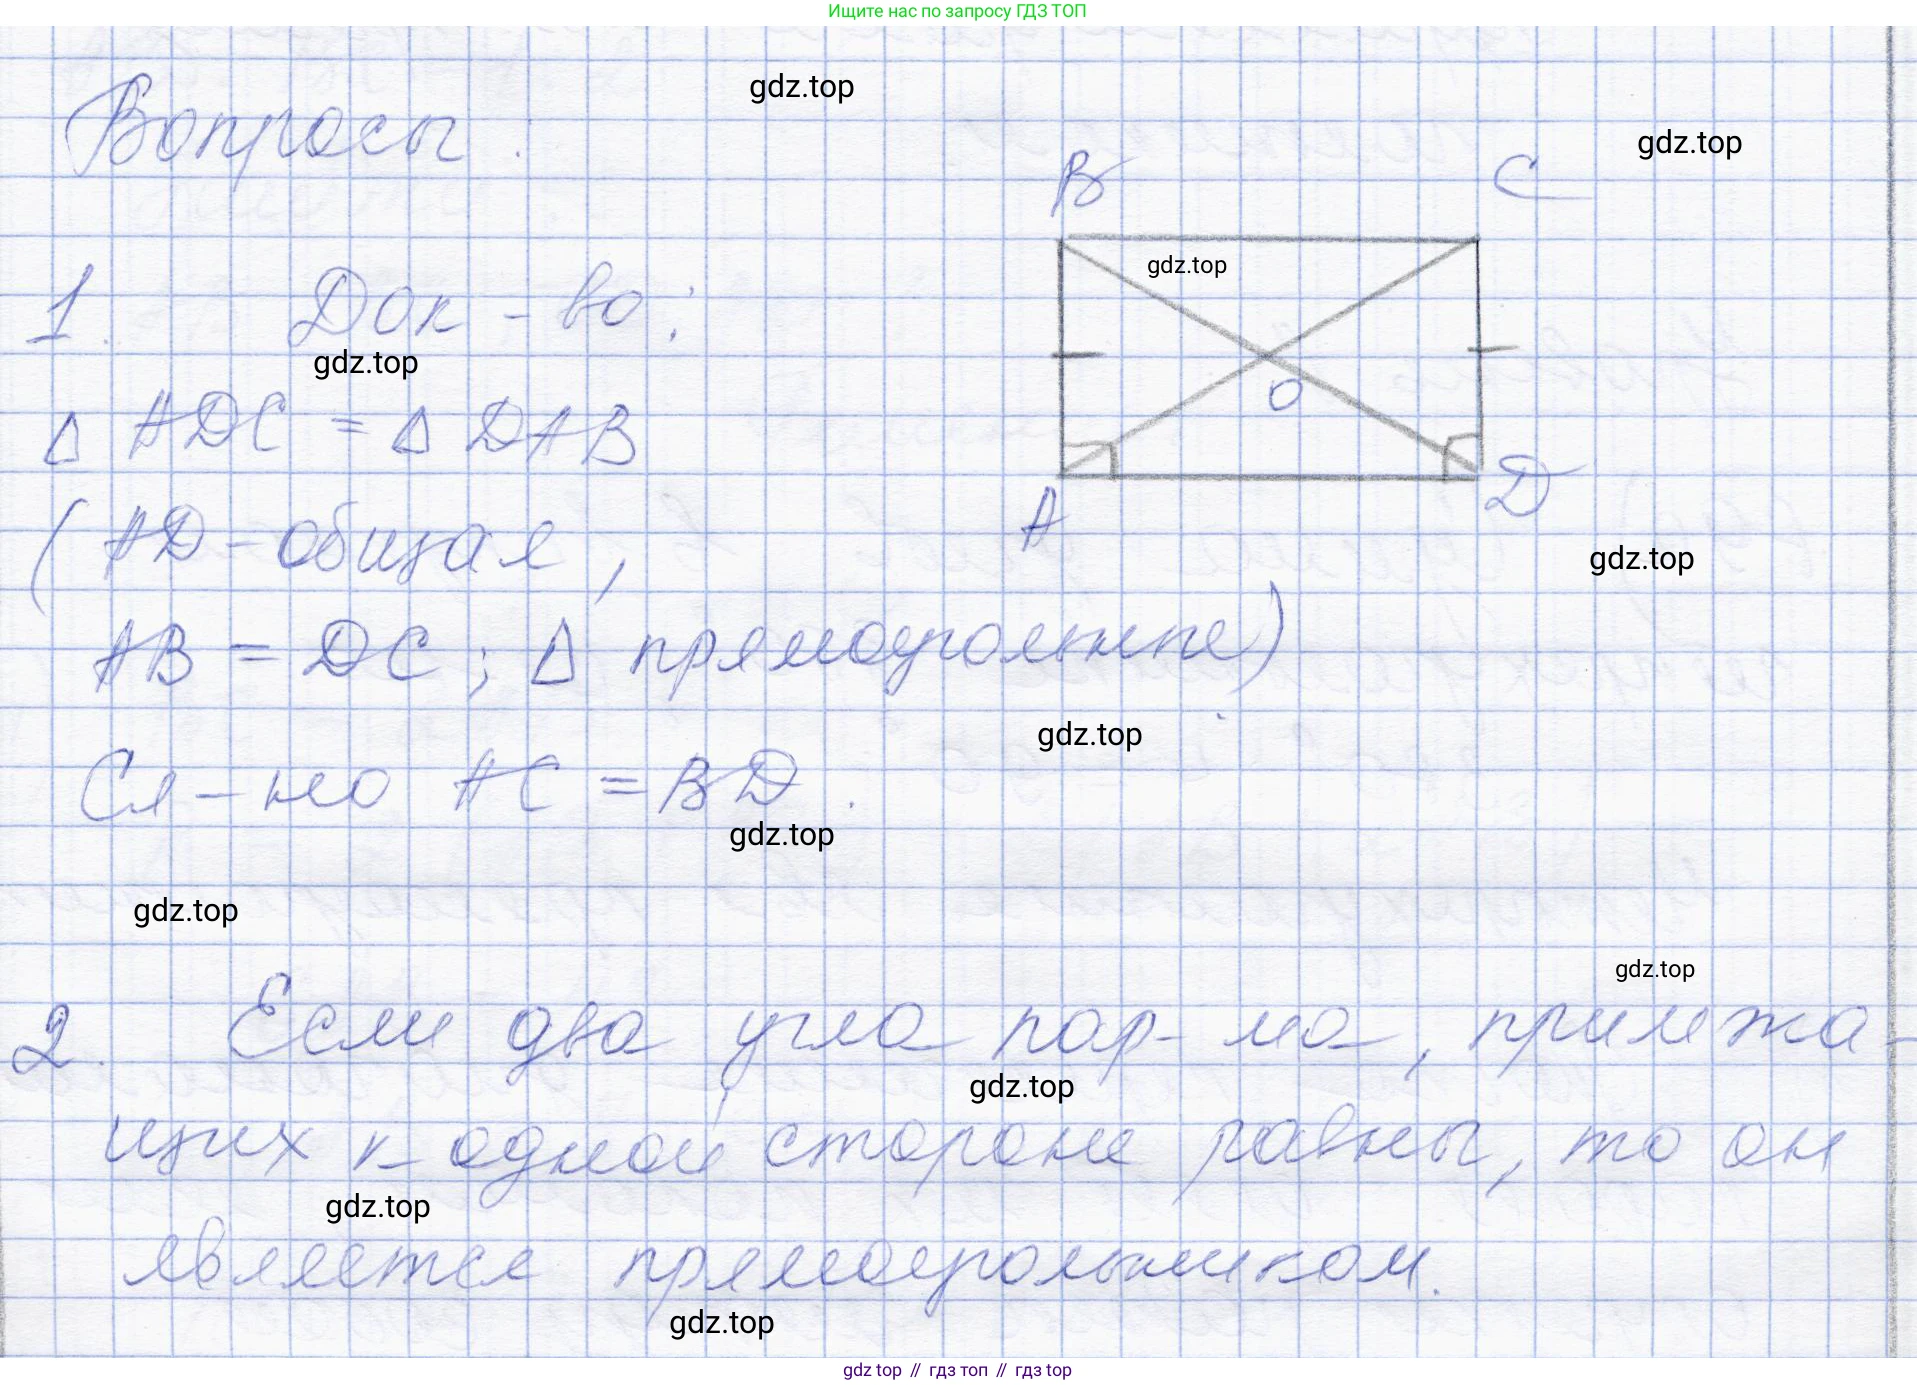 Ищите нас по запросу ГДЗ ТОП
gdz.top
Вопросы:
gdz.top
B C
gdz.top
1. Док-во:
gdz.top
O
Δ ADC = Δ DAB
A D
(AD-общая,
gdz.top
AB = DC; Δ прямоугольные)
gdz.top
Сл-но AC = BD.
gdz.top
gdz.top
gdz.top
2. Если два угла пар-ма, прилежа-
gdz.top
щих к одной стороне равны, то он
gdz.top
является прямоугольником.
gdz.top
gdz top // гдз топ // гдз top